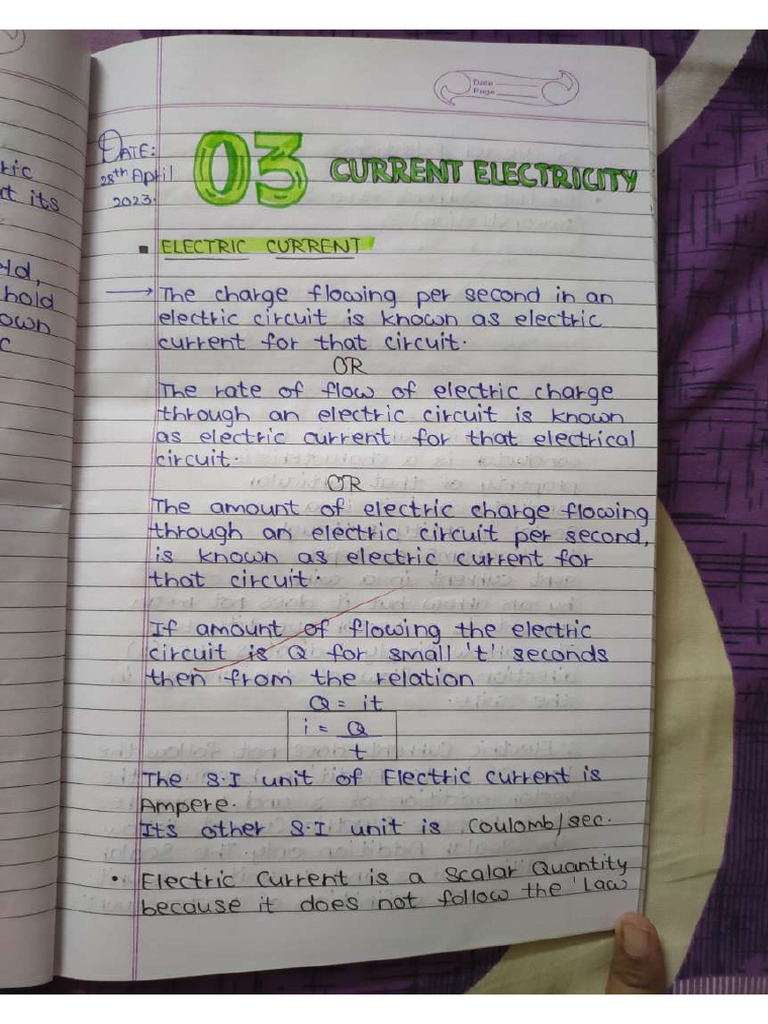 Date
Page
DATE:
28th April
2023.
03 CURRENT ELECTRICITY
ELECTRIC CURRENT
→ The charge flowing per second in an
electric circuit is known as electric
current for that circuit.
OR
The rate of flow of electric charge
through an electric circuit is known
as electric current for that electrical
circuit.
OR
The amount of electric charge flowing
through an electric circuit per second,
is known as electric current for
that circuit.
If amount of flowing the electric
circuit is Q for small 't' seconds
then from the relation
Q = it
i = Q
t
The S.I unit of Electric current is
Ampere.
Its other S.I unit is Coulomb/sec.
• Electric Current is a Scalar Quantity
because it does not follow the 'Law
ric
t its
ld,
hold
own
c